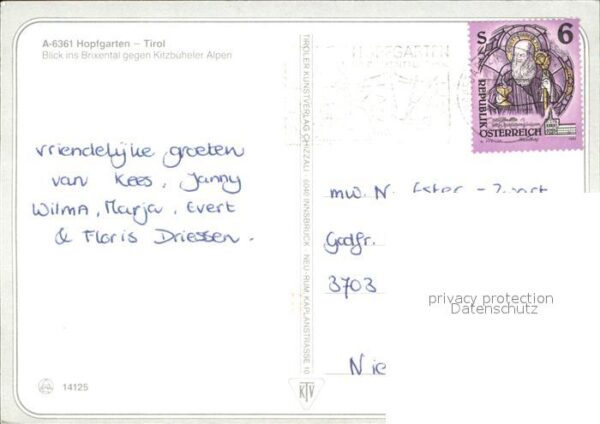 A-6361 Hopfgarten – Tirol
Blick ins Brixental gegen Kitzbüheler Alpen
vriendelijke groeten
van Kees, Janny
Wilma, Marja, Evert
& Floris Driessen.
14125
TIROLER KUNSTVERLAG CHIZZALI 6040 INNSBRUCK - NEU-RUM, KAPLANSTRASSE 10
KTV
HOPFGARTEN
S 6
REPUBLIK
ÖSTERREICH
mw. N. Ester -
Godfr.
3703
Nie
privacy protection
Datenschutz